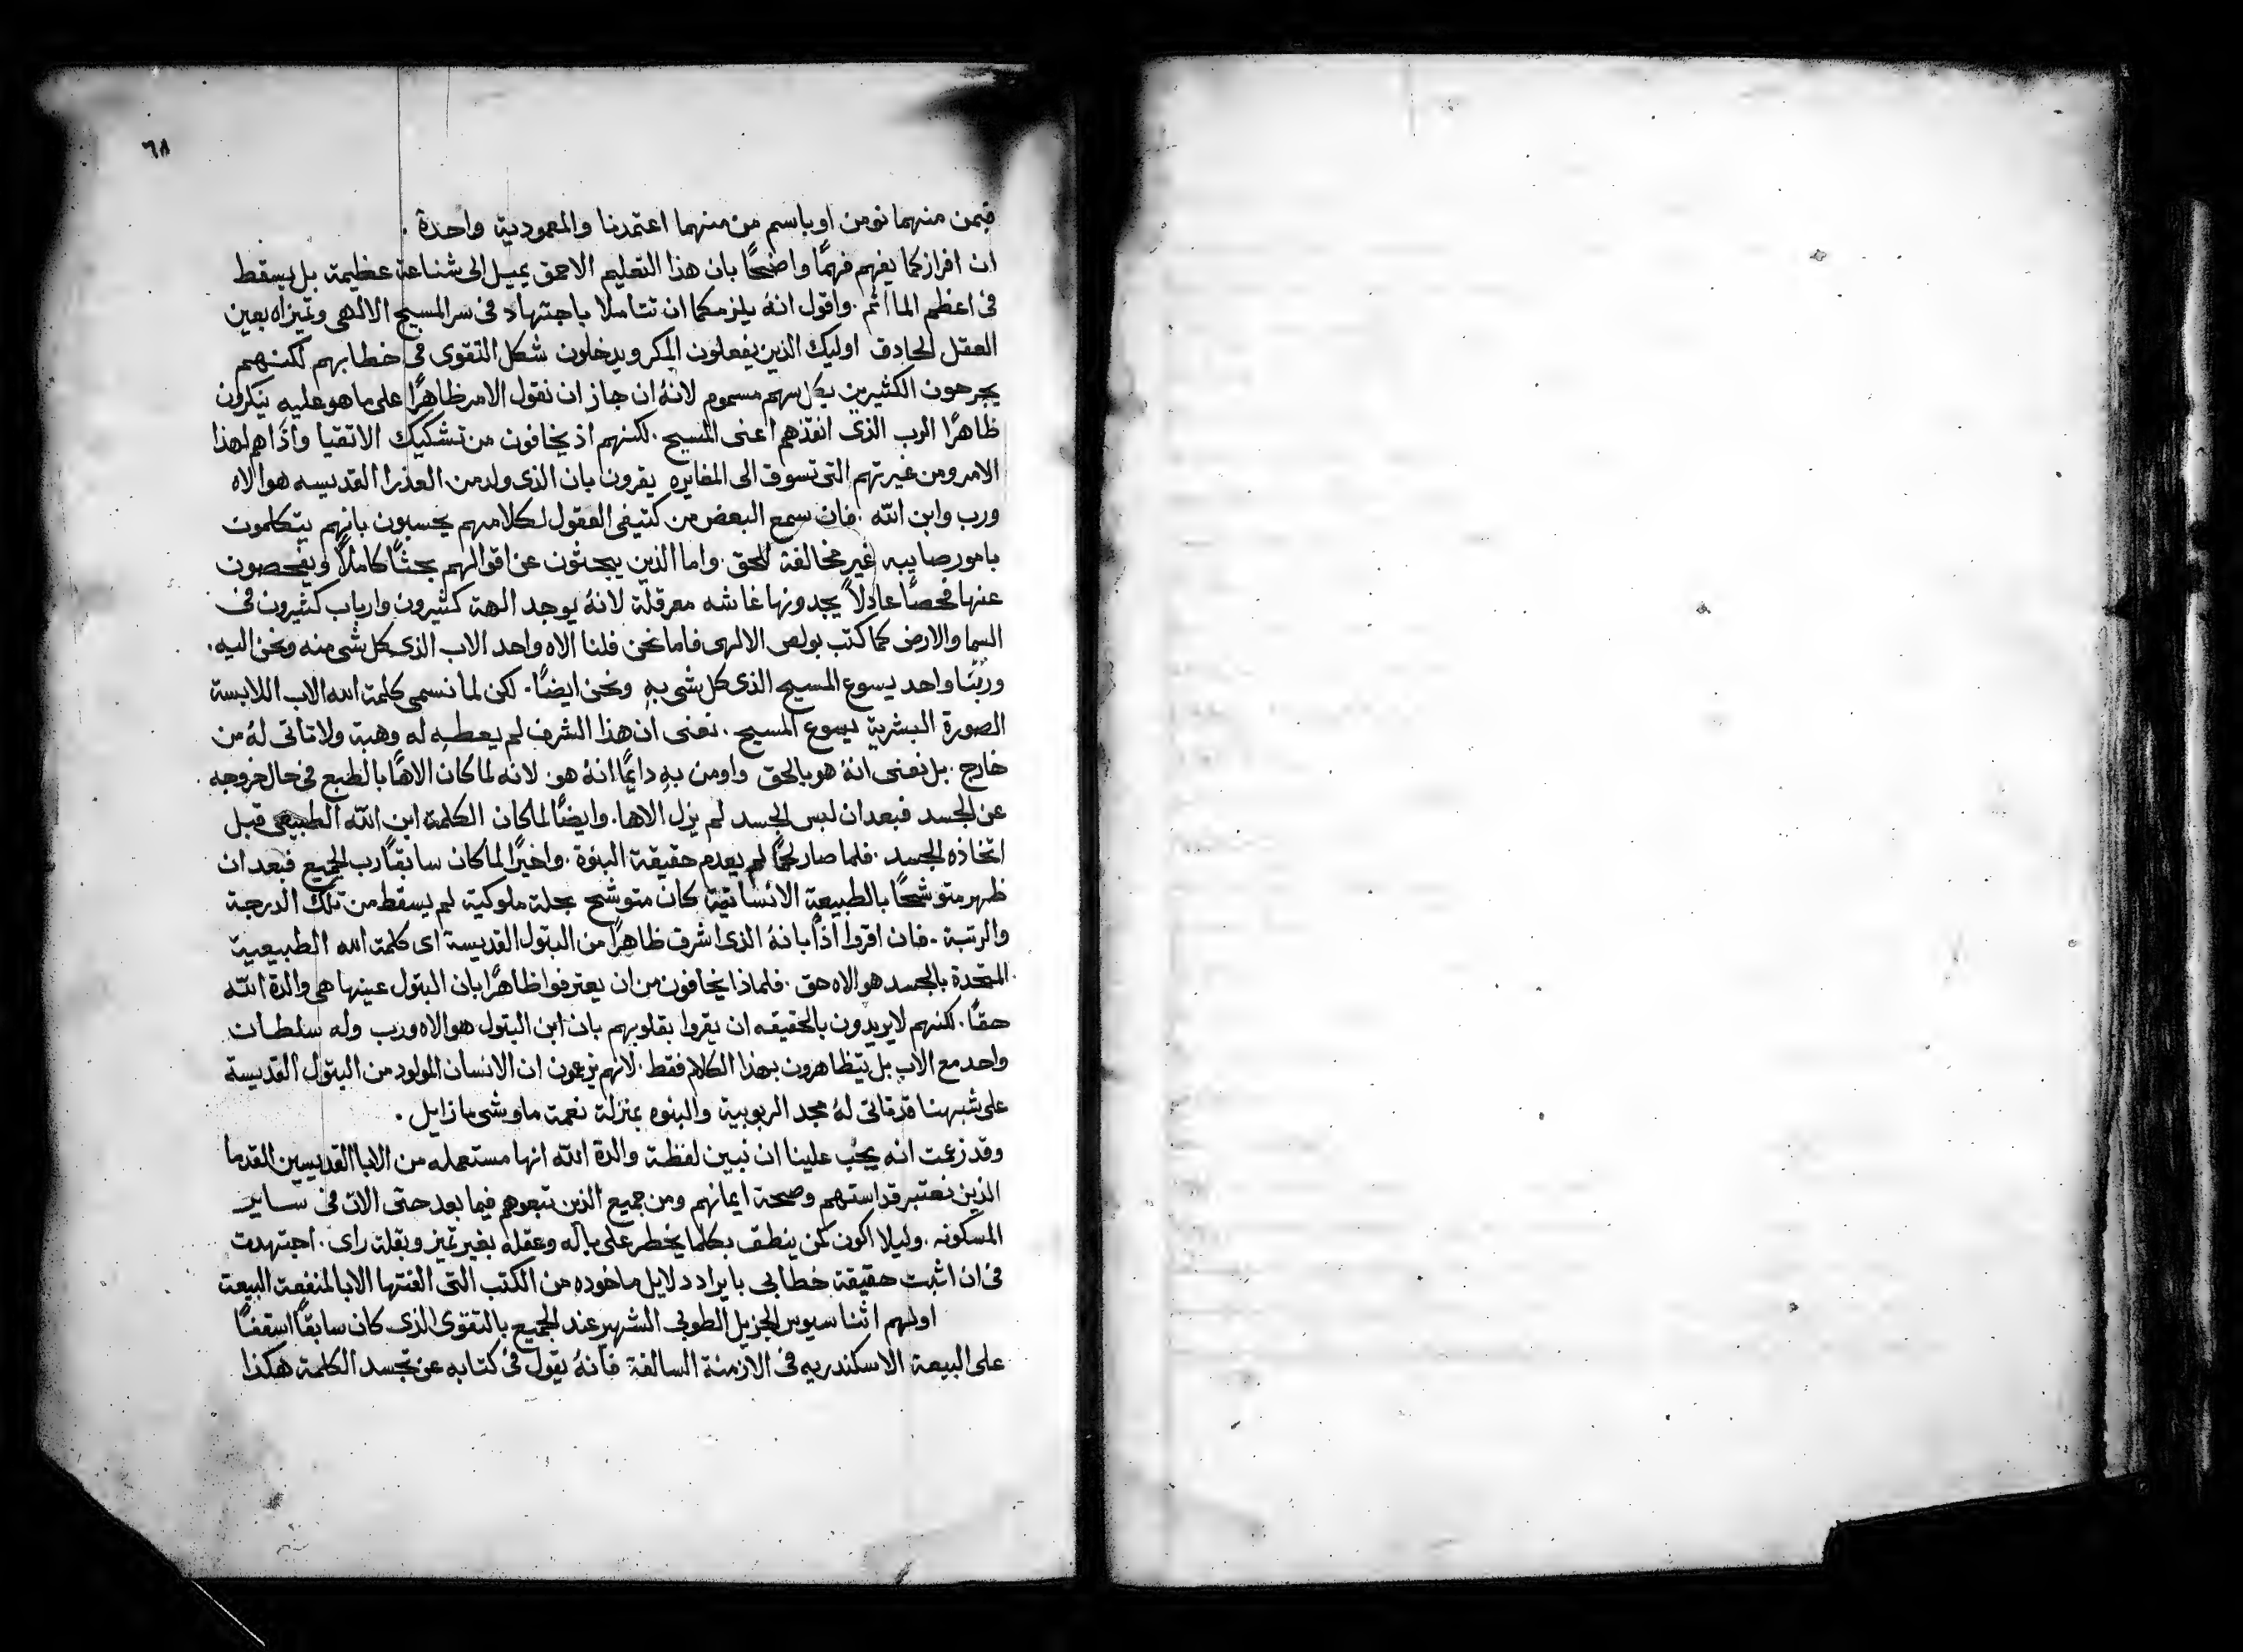 ٦٨
فبمن منهما نومن او باسم من منهما اعتمدنا والمعمودية واحدة .
ان افرازكما يفهم فهمًا واضحًا بان هذا التعليم الاحمق يميل الى شناعة عظيمة بل يسقط
فى اعظم الماأثم . واقول انهُ يلزمكما ان تتاملا باجتهاد فى سر المسيح الالهى وتميزاه بعين
العقل الحادق اوليك الذين يفعلون المكر ويدخلون شكل التقوى فى خطابهم لكنهم
يجرحون الكثيرين بكل سهم مسموم لانهُ ان جاز ان نقول الامر ظاهرًا على ما هو عليه ينكرون
ظاهرًا الرب الذى انقذهم اعنى المسيح . لكنهم اذ يخافون من تشكيك الاتقيا واذاهم لهذا
الامر ومن غيرتهم التى تسوق الى المغايره يقرون بان الذى ولد من العذرا القديسه هو الاه
ورب وابن الله . فان سمع البعض من كتيفى العقول لكلامهم يحسبون بانهم يتكلمون
بامور صايبه غير مخالفة للحق . واما الذين يبحثون عن اقوالهم بحثًا كاملاً ويفحصون
عنها فحصًا عادلاً يجدونها غاشه معرقلة لانهُ يوجد الهة كثيرون وارباب كثيرون فى
السما والارض كما كتب بولص الالهى فاما نحن فلنا الاه واحد الاب الذى كل شى منه ونحن اليه .
وربّنا واحد يسوع المسيح الذى كل شى بهِ ونحن ايضًا . لكن لما نسمى كلمة الله الاب اللابسة
الصورة البشرية يسوع المسيح . نعنى ان هذا الشرف لم يعطه له وهبة ولا تاتى لهُ من
خارج . بل نعنى انهُ هو بالحق واومن بهِ دايمًا انهُ هو . لانه لما كان الاهًا بالطبع فى حال خروجه
عن الجسد فبعد ان لبس الجسد لم يزل الاها . وايضًا لما كان الكلمة ابن الله الطبيعى قبل
اتخاذه الجسد . فلما صار لحمًا لم يعدم حقيقة البنوة . واخيرًا لما كان سابقًا رب الجميع فبعد ان
ظهر متوشحًا بالطبيعة الانسانية كان متوشح بحلة ملوكية لم يسقط من تلك الدرجة
والرتبة . فان اقروا اذًا بانهُ الذى اشرق ظاهرًا من البتول القديسة اى كلمة الله الطبيعية
المتحدة بالجسد هو الاه حق . فلماذا يخافون من ان يعترفوا ظاهرًا بان البتول عينها هى والدة الله
حقًا . لكنهم لا يريدون بالحقيقه ان يقروا بقلوبهم بان ابن البتول هو الاه ورب وله سلطان
واحد مع الاب بل يتظاهرون بهذا الكلام فقط . لانهم يزعمون ان الانسان المولود من البتول القديسة
على شبهنا قد تاتى لهُ مجد الربوبية والبنوه بمنزلة نعمة ما وشى ما زايل .
وقد زعمت انه يجب علينا ان نبين لفظة والدة الله انها مستعمله من الابا القديسين القدما
الذين نعتبر قداستهم وصحة ايمانهم ومن جميع الذين تبعوهم فيما بعد حتى الان فى ساير
المسكونه . وليلا اكون كمن ينطق بكلما يخطر على باله وعقله بغير تميز وبقلة راى . اجتهدت
فى ان اثبت حقيقة خطابى بايراد دلايل ماخوده من الكتب التى الفتها الابا لمنفعة البيعة
اولهم اثناسيوس الجزيل الطوبى الشهير عند الجميع بالتقوى الذى كان سابقًا اسقفًا
على البيعة الاسكندريه فى الازمنة السالفة فانهُ يقول فى كتابه عن تجسد الكلمة هكذا